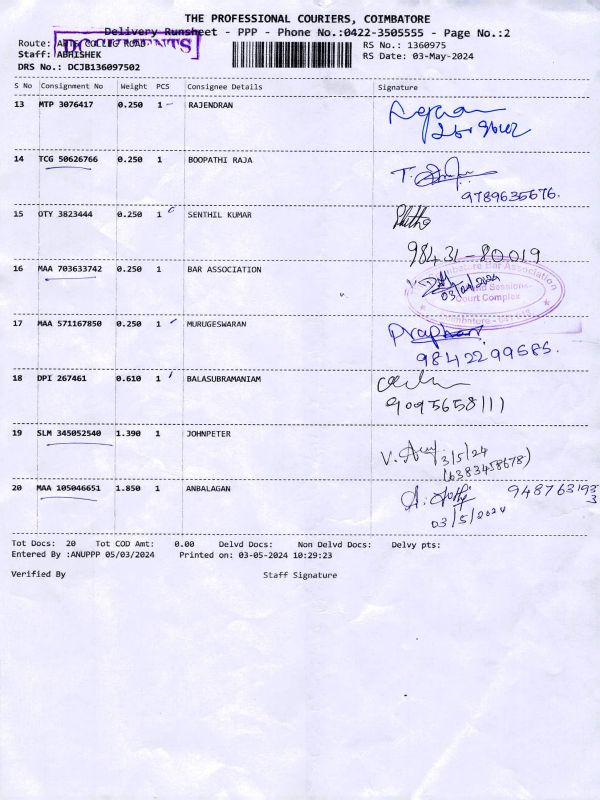 THE PROFESSIONAL COURIERS, COIMBATORE
Delivery Runsheet - PPP - Phone No.:0422-3505555 - Page No.:2
DOCUMENTS
Route: ARTS COLLEG ROAD
RS No.: 1360975
Staff: ABHISHEK
RS Date: 03-May-2024
DRS No.: DCJB136097502
S No Consignment No Weight PCS Consignee Details Signature
13 MTP 3076417 0.250 1 RAJENDRAN
14 TCG 50626766 0.250 1 BOOPATHI RAJA
T.
9789635676.
15 OTY 3823444 0.250 1 SENTHIL KUMAR
98431-80019
16 MAA 703633742 0.250 1 BAR ASSOCIATION
Coimbatore Bar Association
Court Complex
17 MAA 571167850 0.250 1 MURUGESWARAN
9842299585.
18 DPI 267461 0.610 1 BALASUBRAMANIAM
9095658111
19 SLM 345052540 1.390 1 JOHNPETER
V.
3/5/24
(6383458678)
20 MAA 105046651 1.850 1 ANBALAGAN
A.
03/5/2024
Tot Docs: 20 Tot COD Amt: 0.00 Delvd Docs: Non Delvd Docs: Delvy pts:
Entered By :ANUPPP 05/03/2024 Printed on: 03-05-2024 10:29:23
Verified By Staff Signature